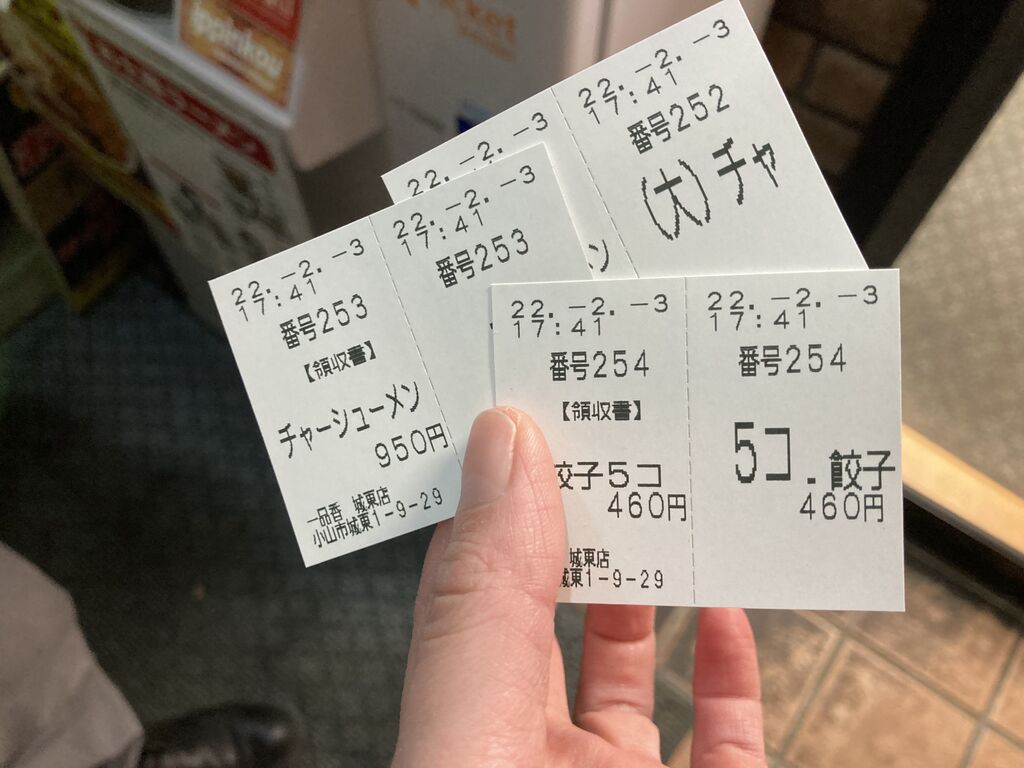 ippinkou
22.-2.-3
22.-2.-3
17:41
番号252
(大)チャ
ン
22.-2.-3
17:41
番号253
【領収書】
チャーシューメン
950円
一品香 城東店
小山市城東1-9-29
22.-2.-3
17:41
番号253
22.-2.-3
17:41
番号254
【領収書】
餃子5コ
460円
城東店
城東1-9-29
22.-2.-3
17:41
番号254
5コ.餃子
460円